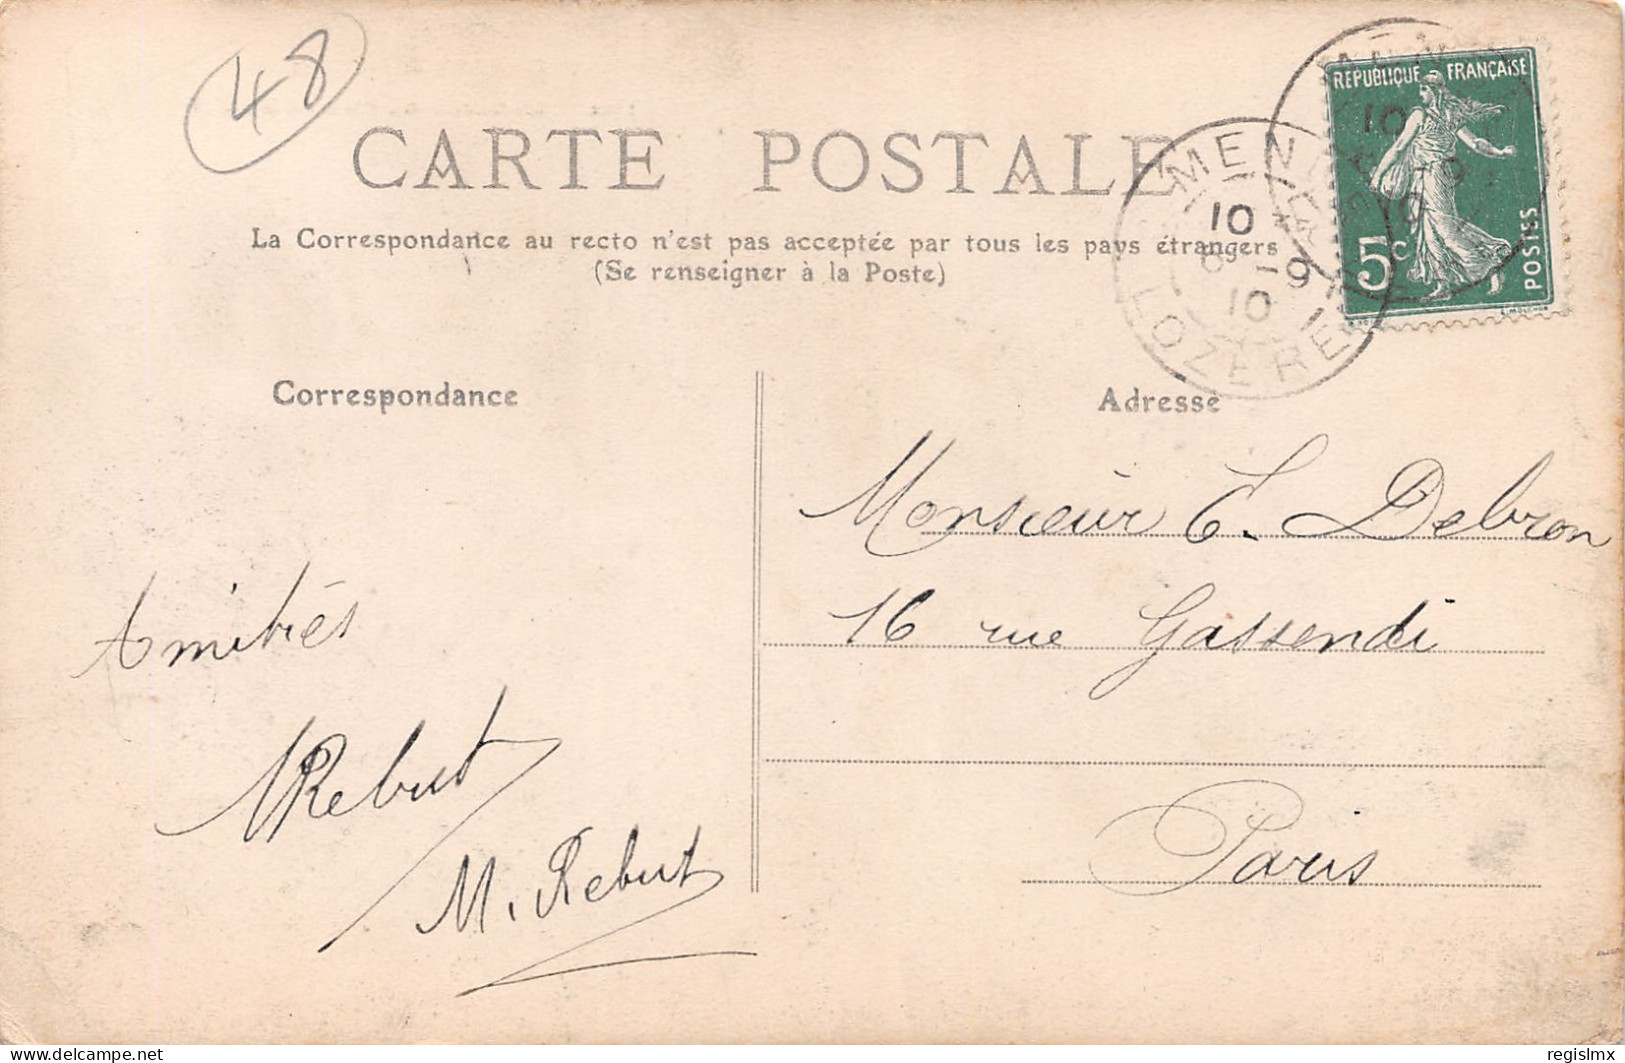 48
CARTE POSTALE
La Correspondance au recto n'est pas acceptée par tous les pays étrangers
(Se renseigner à la Poste)
REPUBLIQUE FRANÇAISE
5c
POSTES
MENDE
10
6 -9
10
LOZERE
Correspondance
Adresse
Monsieur E. Debron
16 rue Gassendi
Paris
Amitiés
Rebut
M. Rebut
delcampe.net
regislmx